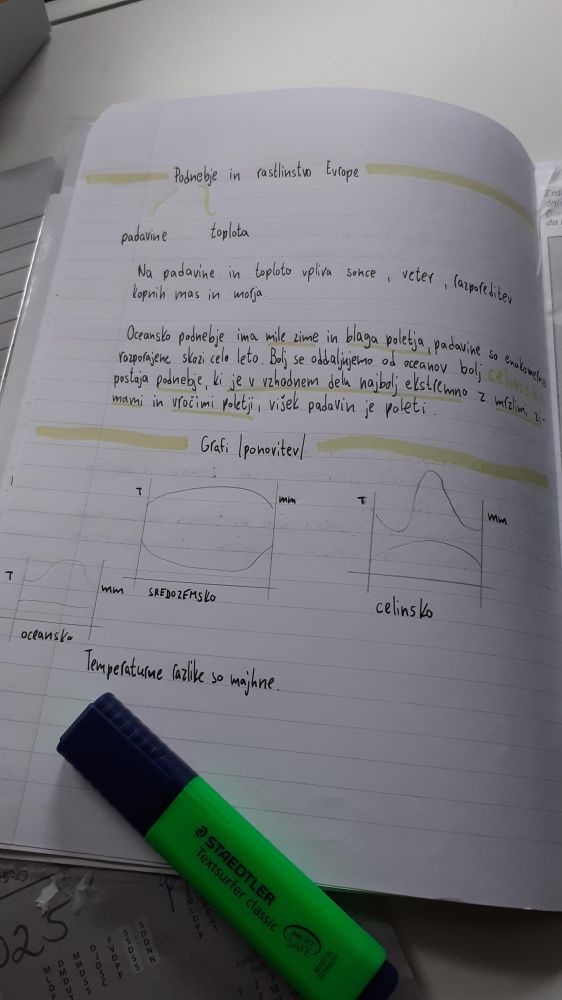 Podnebje in rastlinstvo Evrope
padavine toplota
Na padavine in toploto vpliva sonce, veter, razporeditev
kopnih mas in morja.
Oceansko podnebje ima mile zime in blaga poletja, padavine so enakomerno
razporajene skozi celo leto. Bolj se oddaljujemo od oceanov bolj celinsko
postaja podnebje, ki je v vzhodnem delu najbolj ekstremno z mrzlimi zi-
mami in vročimi poletji, višek padavin je poleti.
Grafi /ponovitev/
T mm
SREDOZEMSKO
T mm
celinsko
T mm
oceansko
Temperaturne razlike so majhne.
STAEDTLER
Textsurfer classic
INK JET
SAFE
MADE IN
GERMANY
025